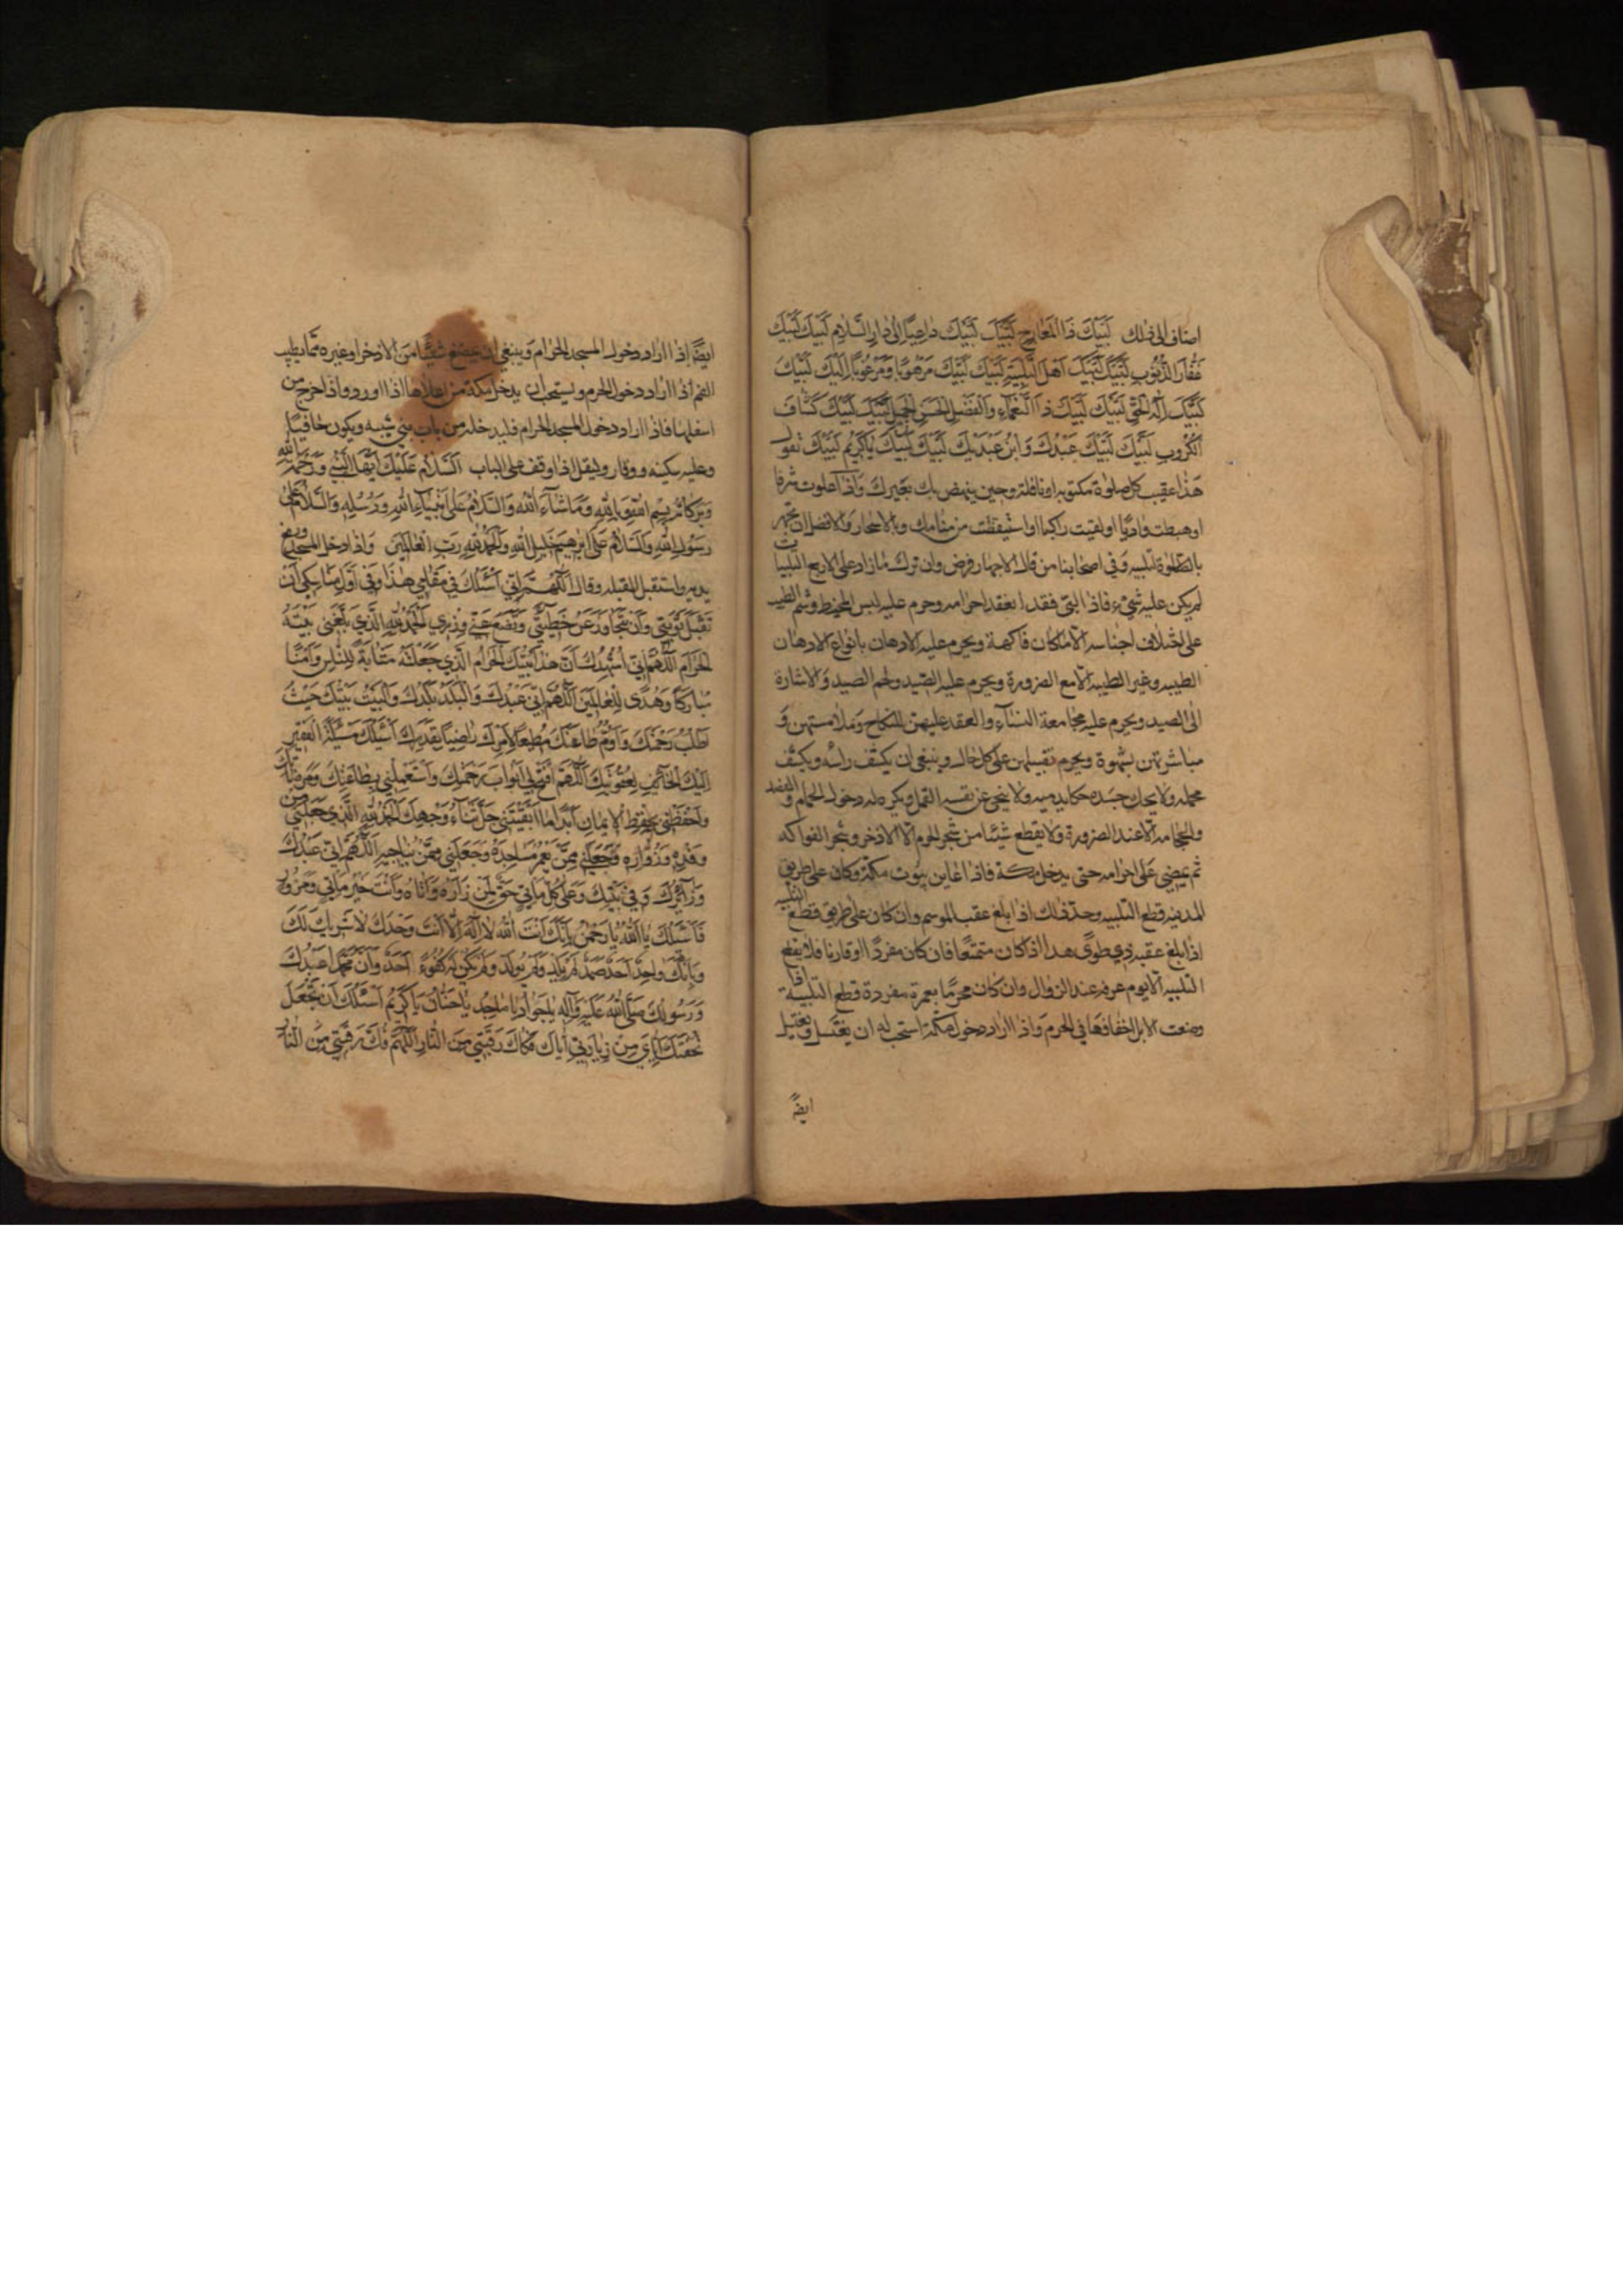 اضاف الى ذلك لَبَّيْكَ ذَا الْمَعَارِجِ لَبَّيْكَ لَبَّيْكَ دَاعِيًا اِلٰى دَارِ السَّلٰامِ لَبَّيْكَ لَبَّيْكَ
غَفّٰارَ الذُّنُوبِ لَبَّيْكَ لَبَّيْكَ اَهْلَ التَّلْبِيَةِ لَبَّيْكَ لَبَّيْكَ مَرْهُوبًا وَمَرْغُوبًا اِلَيْكَ لَبَّيْكَ
لَبَّيْكَ اِلٰهَ الْحَقِّ لَبَّيْكَ لَبَّيْكَ ذَا النَّعْمٰاءِ وَالْفَضْلِ الْحَسَنِ الْجَمِيلِ لَبَّيْكَ لَبَّيْكَ كَشّٰافَ
الْكُرُوبِ لَبَّيْكَ لَبَّيْكَ عَبْدُكَ وَابْنُ عَبْدَيْكَ لَبَّيْكَ لَبَّيْكَ يٰا كَرِيمُ لَبَّيْكَ تقول
هذا عقيب كل صلوة مكتوبة او نافلة وحين ينهض بك بعيرك واذا علوت شرفا
او هبطت واديا او لقيت راكبا او استيقظت من منامك وبالاسحار والافضل ان تجهر
بالتلبية وفي اصحابنا من قال الاجهار فرض وان ترك ما زاد على الاربع التلبيات
لم يكن عليه شيء فاذا لبّى فقد انعقد احرامه وحرم عليه لبس المخيط وشم الطيب
على اختلاف اجناسه الا ما كان فاكهة ويحرم عليه الادهان بانواع الادهان
الطيبه وغير الطيبه الا مع الضرورة ويحرم عليه الصيد ولحم الصيد والاشارة
الى الصيد ويحرم عليه مجامعة النسآء والعقد عليهن للنكاح وملامستهن و
مباشرتهن بشهوة ويحرم تقبيلهن على كل حال وينبغي ان يكشف راسه ويكشف
محمله ولا يحك جسده حكا يدميه ولا ينحي عن نفسه القمل ويكره له دخول الحمام والفصد
والحجامة الا عند الضرورة ولا يقطع شيئا من شجر الحرم الا الاذخر وشجر الفواكه
ثم يمضي على احرامه حتى يدخل مكة فاذا عاين بيوت مكة وكان على طريق
المدينه قطع التلبيه وحد ذلك اذا بلغ عقبه وان كان على طريق قطع التلبيه
اذا بلغ عقبه ذي طوى هذا اذا كان متمتعا فان كان مفردا او قارنا فلا يقطع
التلبيه الا يوم عرفه عند الزوال وان كان محرما بعمرة مفردة قطع التلبية اذا
وضعت الابل اخفافها في الحرم واذا اراد دخول مكة استحب له ان يغتسل ويغتسل
ايضًا
ايضًا اذا اراد دخول المسجد الحرام وينبغي ان يمضغ شيئا من الاذخر او غيره مما يطيب
الفم اذا اراد دخول الحرم ويستحب ان يدخل مكة من اعلاها اذا ورد واذا خرج من
اسفلها فاذا اراد دخول المسجد الحرام فليدخله من باب بني شيبه ويكون حافيا
وعليه سكينه ووقار وليقل اذا وقف على الباب اَلسَّلٰامُ عَلَيْكَ اَيُّهَا النَّبِيُّ وَرَحْمَةُ اللّٰهِ
وَبَرَكٰاتُهُ بِسْمِ اللّٰهِ وَبِاللّٰهِ وَمٰا شٰآءَ اللّٰهُ وَالسَّلٰامُ عَلٰى اَنْبِيٰآءِ اللّٰهِ وَرُسُلِهِ وَالسَّلٰامُ عَلٰى
رَسُولِ اللّٰهِ وَالسَّلٰامُ عَلٰى اِبْرٰهِيمَ خَلِيلِ اللّٰهِ وَالْحَمْدُ لِلّٰهِ رَبِّ الْعٰالَمِينَ واذا دخل المسجد رفع
يديه واستقبل القبله وقال اَللّٰهُمَّ اِنِّي اَسْئَلُكَ فِي مَقٰامِي هٰذَا وَفِي اَوَّلِ مَنٰاسِكِي اَنْ
تَقْبَلَ تَوْبَتِي وَاَنْ تَتَجٰاوَزَ عَنْ خَطِيئَتِي وَتَضَعَ عَنِّي وِزْرِي اَلْحَمْدُ لِلّٰهِ الَّذِي بَلَّغَنِي بَيْتَهُ
الْحَرٰامَ اَللّٰهُمَّ اِنِّي اُشْهِدُكَ اَنَّ هٰذَا بَيْتُكَ الْحَرٰامُ الَّذِي جَعَلْتَهُ مَثٰابَةً لِلنّٰاسِ وَاَمْنًا
مُبٰارَكًا وَهُدًى لِلْعٰالَمِينَ اَللّٰهُمَّ اِنِّي عَبْدُكَ وَالْبَلَدَ بَلَدُكَ وَالْبَيْتَ بَيْتُكَ جِئْتُ
اَطْلُبُ رَحْمَتَكَ وَاَؤُمُّ طٰاعَتَكَ مُطِيعًا لِاَمْرِكَ رٰاضِيًا بِقَدَرِكَ اَسْئَلُكَ مَسْئَلَةَ الْفَقِيرِ
اِلَيْكَ الْخٰآئِفِ لِعُقُوبَتِكَ اَللّٰهُمَّ افْتَحْ لِي اَبْوٰابَ رَحْمَتِكَ وَاسْتَعْمِلْنِي بِطٰاعَتِكَ وَمَرْضٰاتِكَ
وَاحْفَظْنِي بِحِفْظِ الْاِيمٰانِ اَبَدًا مٰا اَبْقَيْتَنِي جَلَّ ثَنٰآءُ وَجْهِكَ اَلْحَمْدُ لِلّٰهِ الَّذِي جَعَلَنِي مِنْ
وَفْدِهِ وَزُوّٰارِهِ وَجَعَلَنِي مِمَّنْ يَعْمُرُ مَسٰاجِدَهُ وَجَعَلَنِي مِمَّنْ يُنٰاجِيهِ اَللّٰهُمَّ اِنِّي عَبْدُكَ
وَزٰآئِرُكَ وَفِي بَيْتِكَ وَعَلٰى كُلِّ مَأْتِيٍّ حَقٌّ لِمَنْ زٰارَهُ وَاَتٰاهُ وَاَنْتَ خَيْرُ مَأْتِيٍّ وَمَزُورٍ
فَاَسْئَلُكَ يٰا اَللّٰهُ يٰا رَحْمٰنُ بِاَنَّكَ اَنْتَ اللّٰهُ لٰا اِلٰهَ اِلّٰا اَنْتَ وَحْدَكَ لٰا شَرِيكَ لَكَ
وَبِاَنَّكَ وٰاحِدٌ اَحَدٌ صَمَدٌ لَمْ يَلِدْ وَلَمْ يُولَدْ وَلَمْ يَكُنْ لَهُ كُفُوًا اَحَدٌ وَاَنَّ مُحَمَّدًا عَبْدُكَ
وَرَسُولُكَ صَلَّى اللّٰهُ عَلَيْهِ وَآلِهِ يٰا جَوٰادُ يٰا مٰاجِدُ يٰا حَنّٰانُ يٰا كَرِيمُ اَسْئَلُكَ اَنْ تَجْعَلَ
تُحْفَتَكَ اِيّٰايَ مِنْ زِيٰارَتِي اِيّٰاكَ فَكٰاكَ رَقَبَتِي مِنَ النّٰارِ اَللّٰهُمَّ فُكَّ رَقَبَتِي مِنَ النّٰارِ